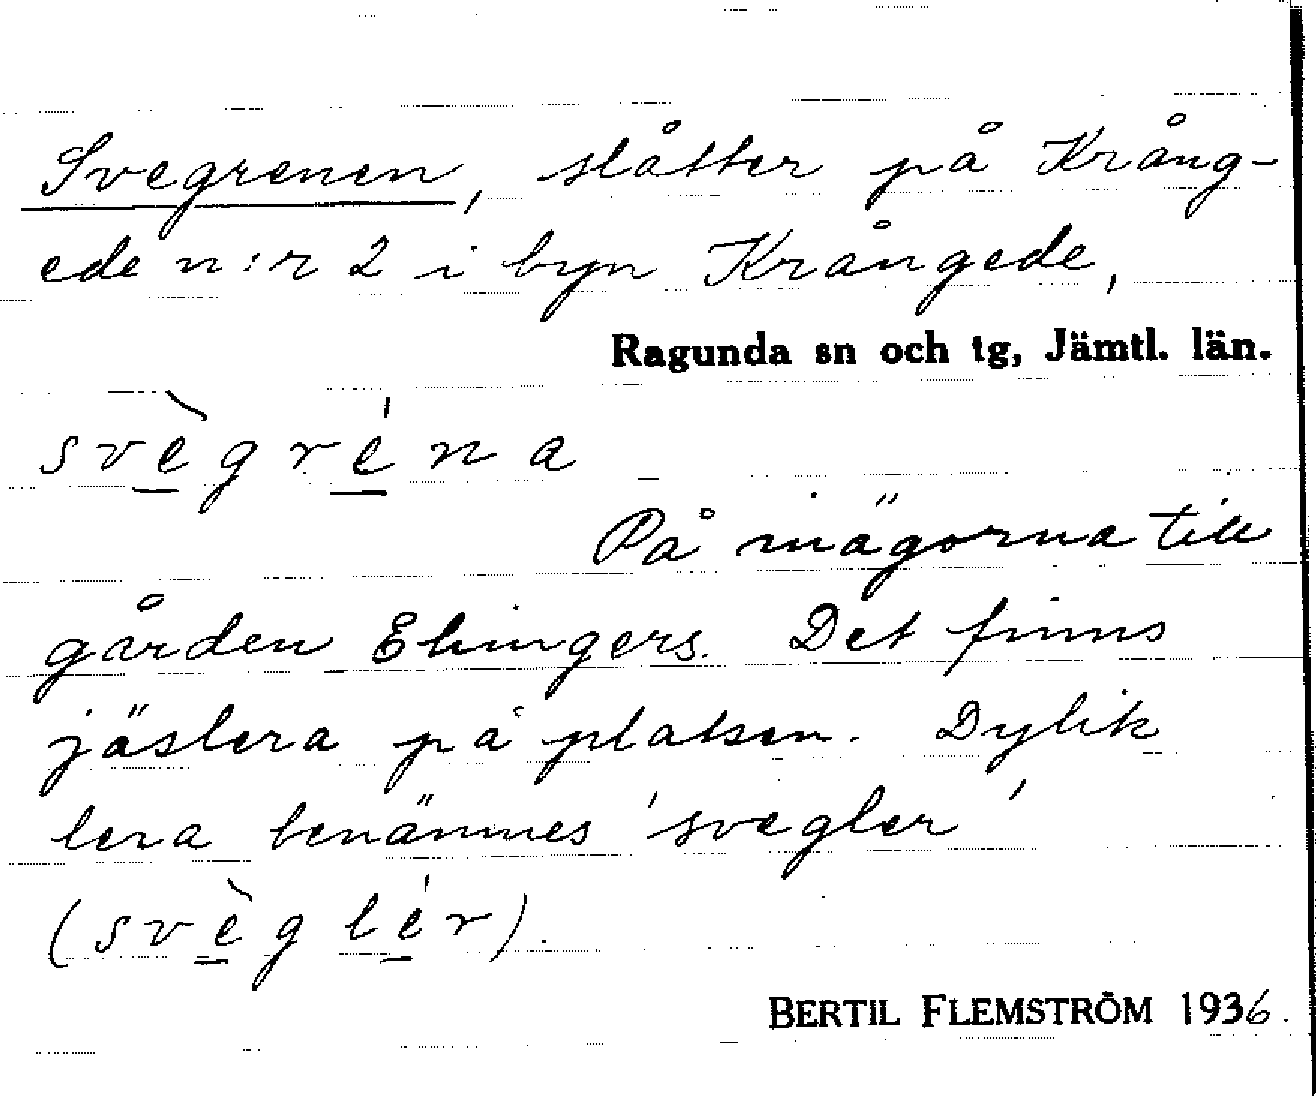 Svegrenen, slåtter på Krång-
ede n:r 2 i byn Krångede,
Ragunda sn och tg, Jämtl. län.
svègréna
På inägorna till
gården Elmgers. Det finns
jäslera på platsen. Dylik
lera benämnes 'svegler'
(svèglér).
BERTIL FLEMSTRÖM 1936.